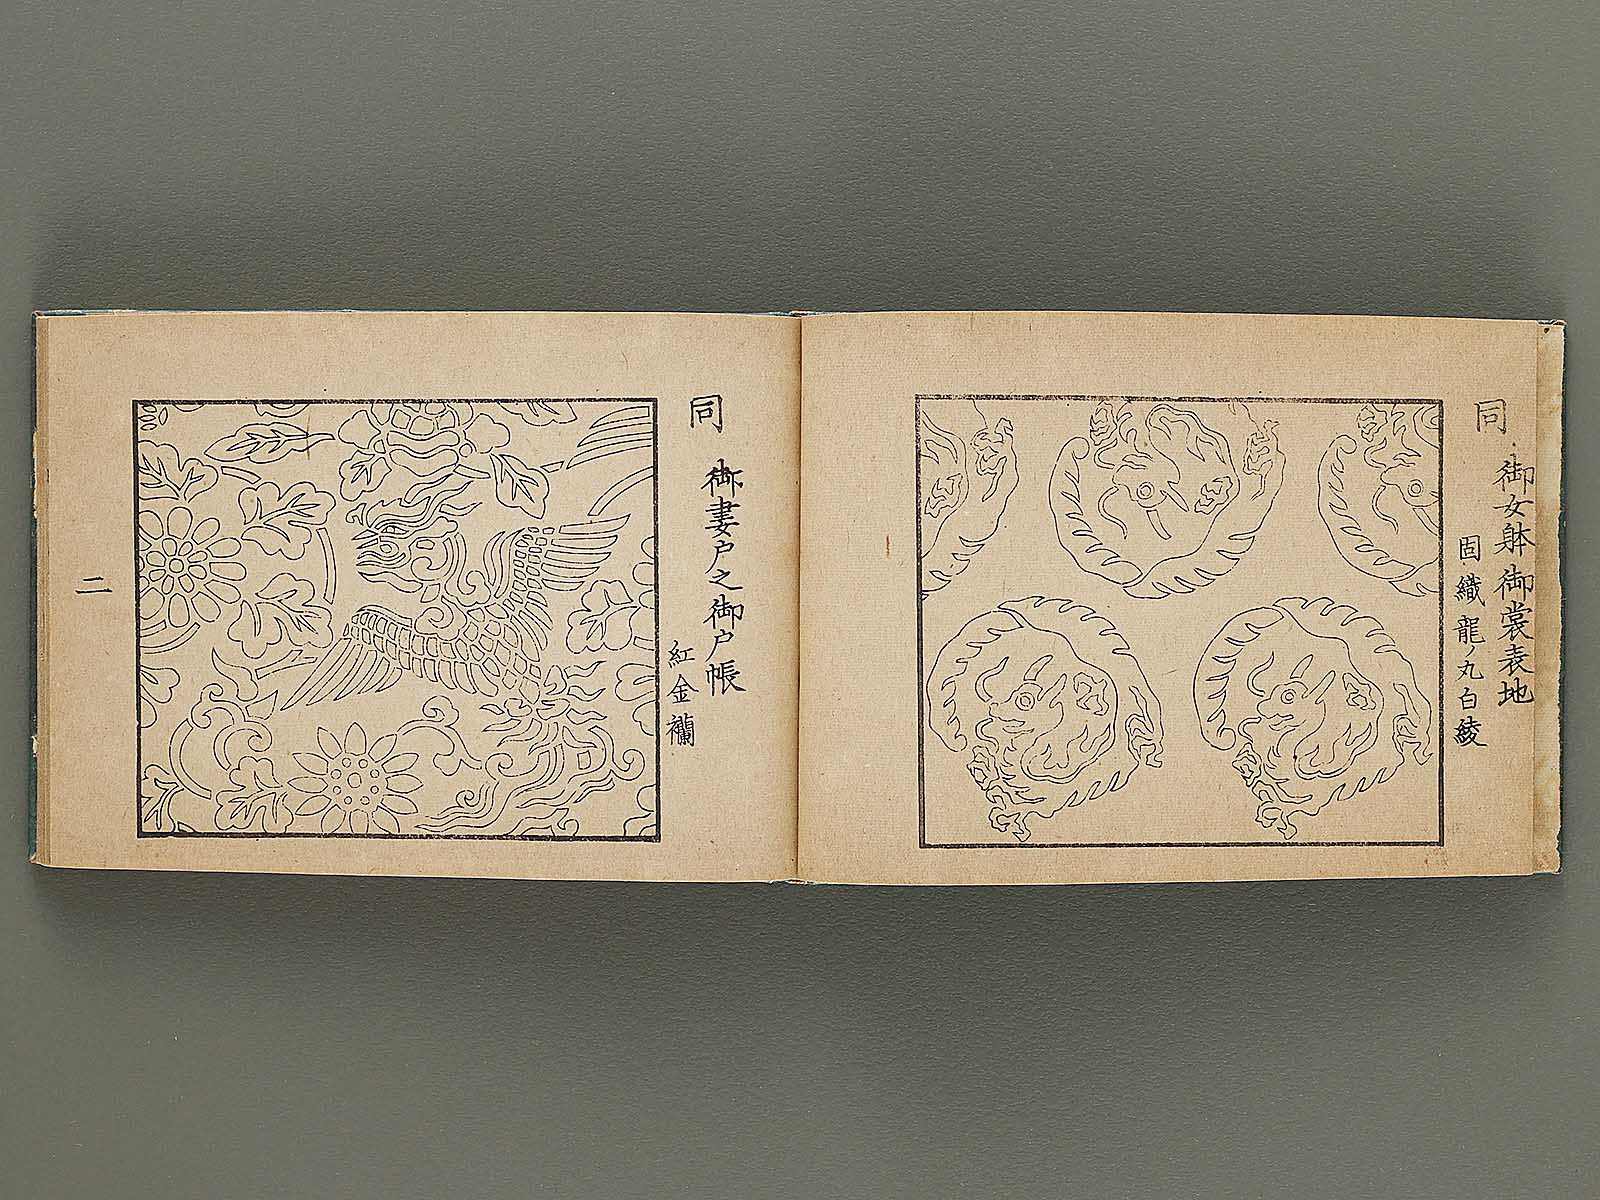 同 御女躰御裳表地
固織龍ノ丸白綾
同 御妻戸之御戸帳
紅金襴
二